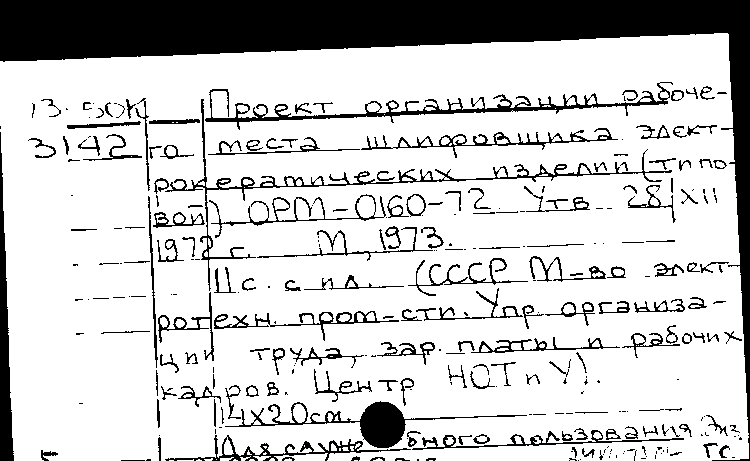 13-50К Проект организации рабоче-
3142 го места шлифовщика элект-
рокерамических изделий (типо-
вой). ОРМ-0160-72 Утв 28/XII
1972 г. М, 1973.
11 с. с ил. (СССР М-во элект-
ротехн. пром-сти. Упр организа-
ции труда, зар. платы и рабочих
кадров. Центр НОТ и У).
14х20см.
Для служебного пользования. Экз.
ГС.